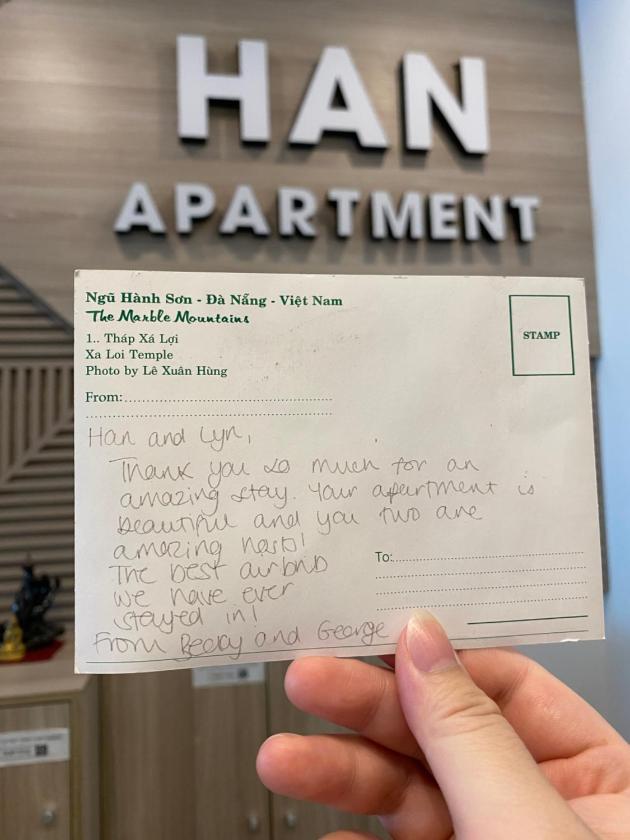 HAN
APARTMENT
Ngũ Hành Sơn - Đà Nẵng - Việt Nam
The Marble Mountains
1.. Tháp Xá Lợi
Xa Loi Temple
Photo by Lê Xuân Hùng
STAMP
From:
Han and Lyn,
Thank you so much for an
amazing stay. Your apartment is
beautiful and you two are
amazing hosts!
The best airbnb
we have ever
stayed in!
From Becky and George
To: